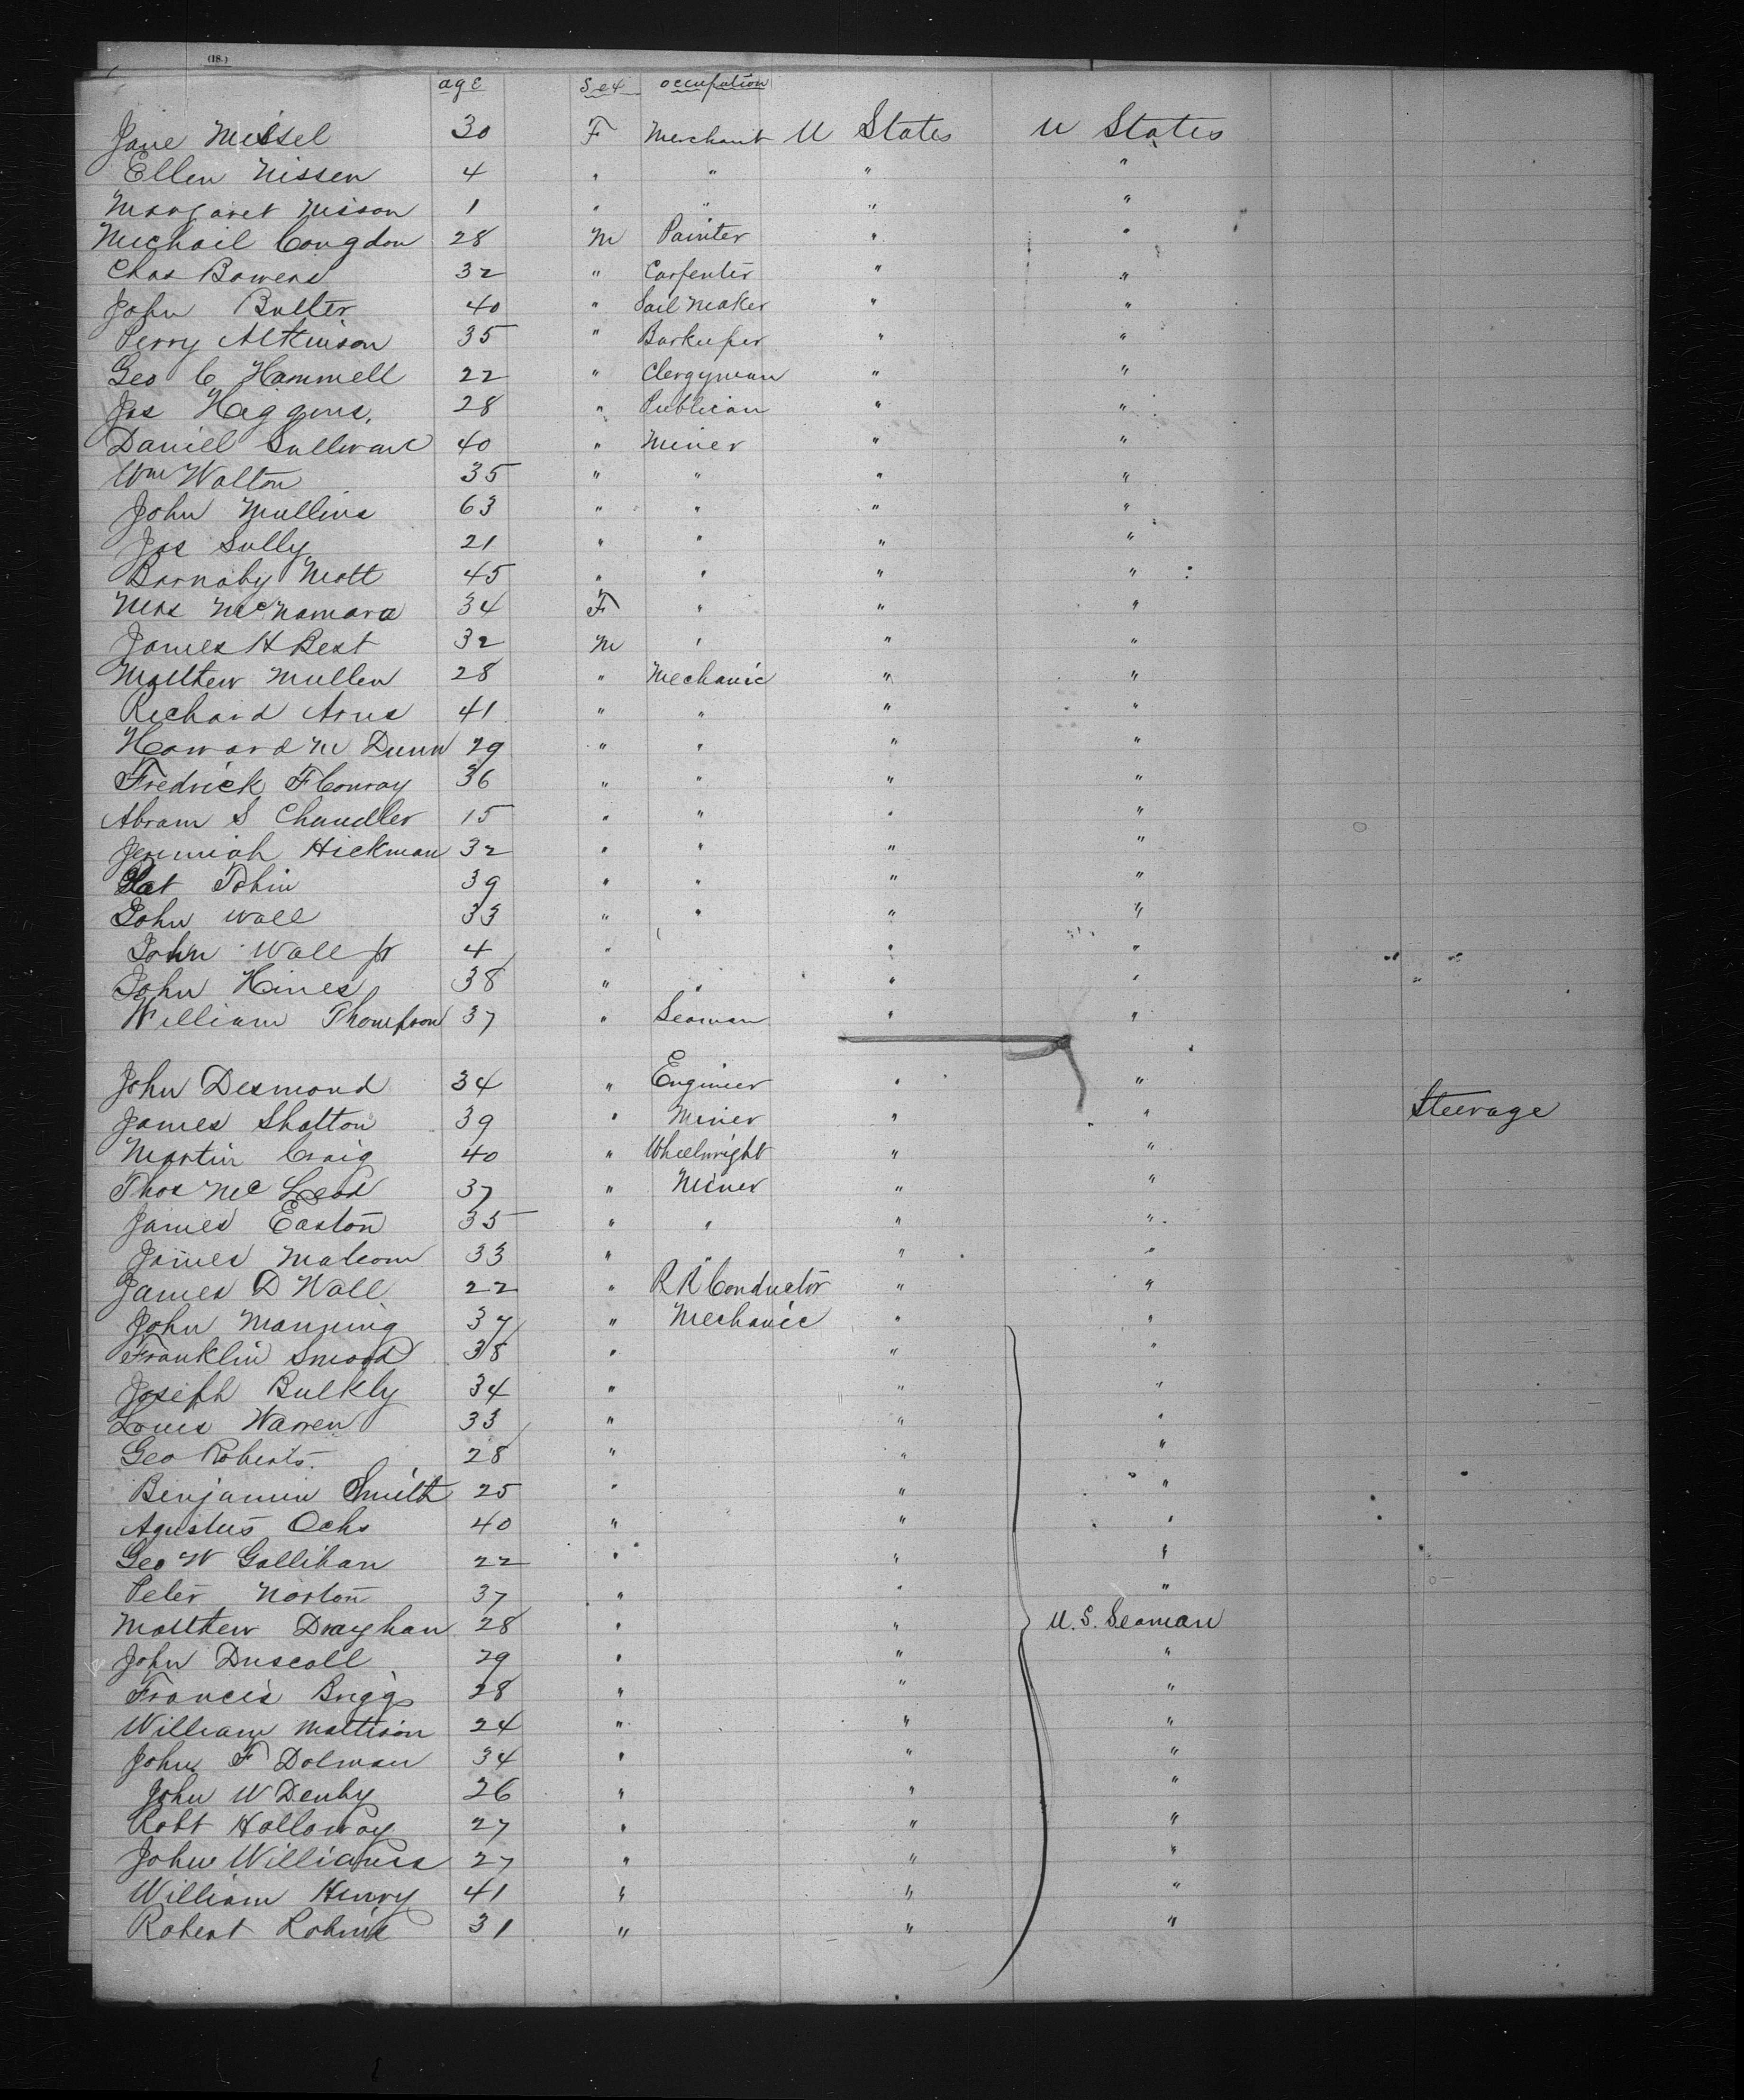 (18.)
age Sex occupation
Jane Missel 30 F Merchant U States U States
Ellen Nissen 4 " " " "
Margaret Nisson 1 " " " "
Michail Congdon 28 M Painter " "
Chas Bowens 32 " Carpenter " "
John Butter 40 " Sail Maker " "
Perry Atkinson 35 " Barkeeper " "
Geo C Hammell 22 " Clergyman " "
Jas Higgins. 28 " Publican " "
Daniel Sullivan 40 " Miner " "
Wm Walton 35 " " " "
John Mullins 63 " " " "
Jas Sully 21 " " " "
Barnaby Mott 45 " " " "
Mrs McNamara 34 F " " "
James H Best 32 M " " "
Matthew Mullen 28 " Mechanic " "
Richard Arus 41 " " " "
Howard M Dunn 29 " " " "
Fredrick F Conray 36 " " " "
Abram S Chandler 15 " " " "
Jeremiah Hickman 32 " " " "
Pat Tobin 39 " " " "
John Wall 33 " " " "
John Wall Jr 4 " " "
John Hines 38 " " " "
William Thompson 37 " Seaman " "
John Desmond 34 " Engineer " "
James Shatton 39 " Miner " " Steerage
Martin Craig 40 " Wheelwright " "
Thos McLeod 37 " Miner " "
James Easton 35 " " " "
James Malcom 33 " " " "
James D Wall 22 " R R Conductor " "
John Manning 37 " Mechanic " "
Franklin Smood 38 " " "
Joseph Bulkly 34 " " "
Louis Warren 33 " " "
Geo Roberts. 28 " " "
Benjamin Smith 25 " " "
Agustus Ochs 40 " " "
Geo W Gallihan 22 " " "
Peter Norton 37 " " "
Matthew Drayhan 28 " " U.S. Seaman
John Driscoll 29 " " "
Francis Briggs 28 " " "
William Mattison 24 " " "
John F Dolman 34 " " "
John W Denby 26 " " "
Robt Holloway 27 " " "
John Williams 27 " " "
William Henry 41 " " "
Robert Robins 31 " " "